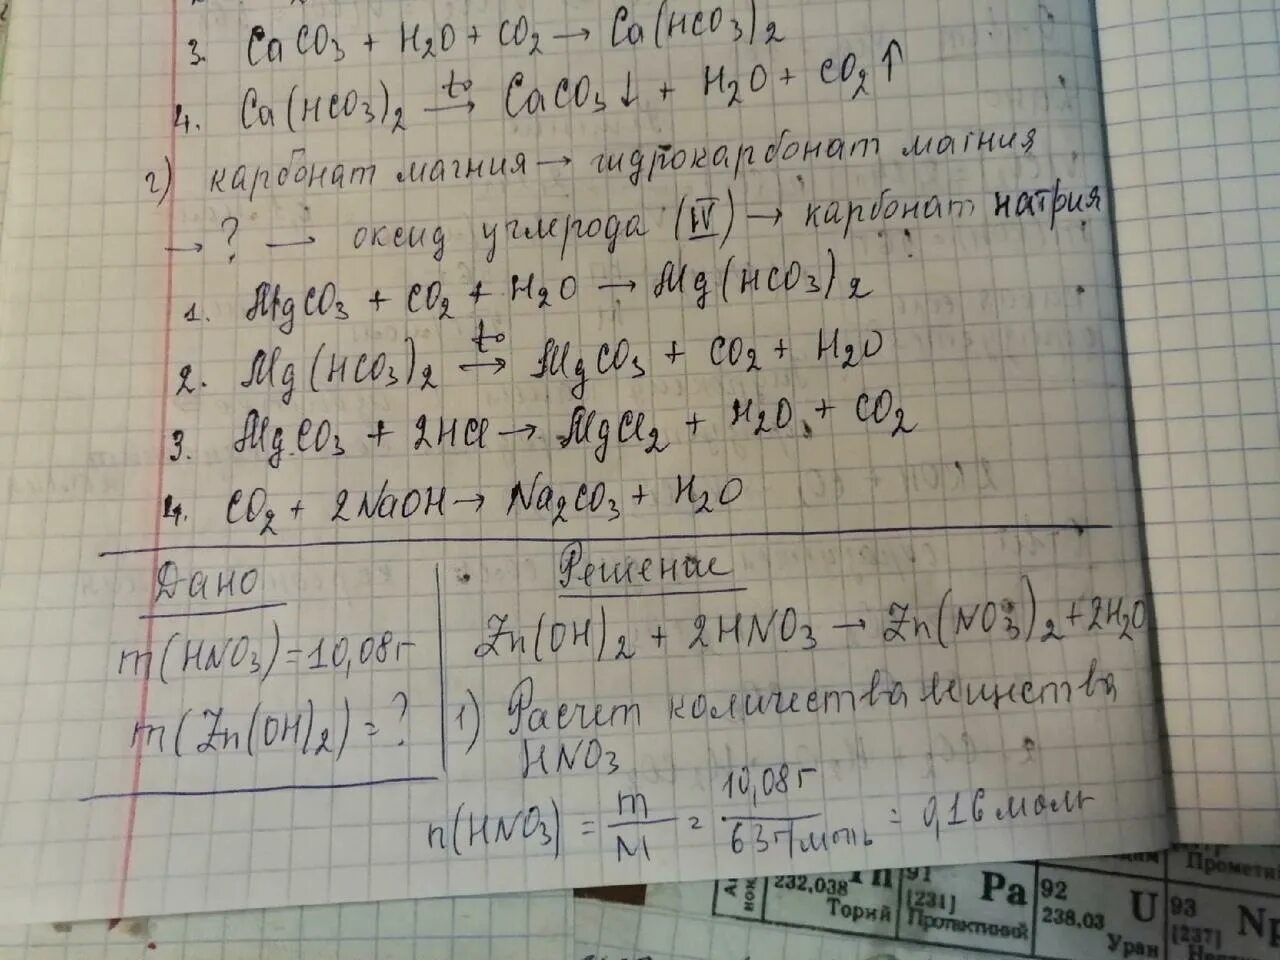 3. CaCO3 + H2O + CO2 → Ca(HCO3)2
4. Ca(HCO3)2 t° → CaCO3↓ + H2O + CO2↑
г) карбонат магния → гидрокарбонат магния
→ ? → оксид углерода (IV) → карбонат натрия
1. MgCO3 + CO2 + H2O → Mg(HCO3)2
2. Mg(HCO3)2 t° → MgCO3 + CO2 + H2O
3. MgCO3 + 2HCl → MgCl2 + H2O + CO2
4. CO2 + 2NaOH → Na2CO3 + H2O
Дано
m(HNO3) = 10,08г
m(Zn(OH)2) = ?
Решение
Zn(OH)2 + 2HNO3 → Zn(NO3)2 + 2H2O
1) Расчет количества вещества
HNO3
n(HNO3) = m/M = 10,08г/63г/моль = 0,16 моль
232,038 Th
Торий
91
[231] Pa
Протактиний
92
238,03 U
Уран
93
[237] Np
Прометий